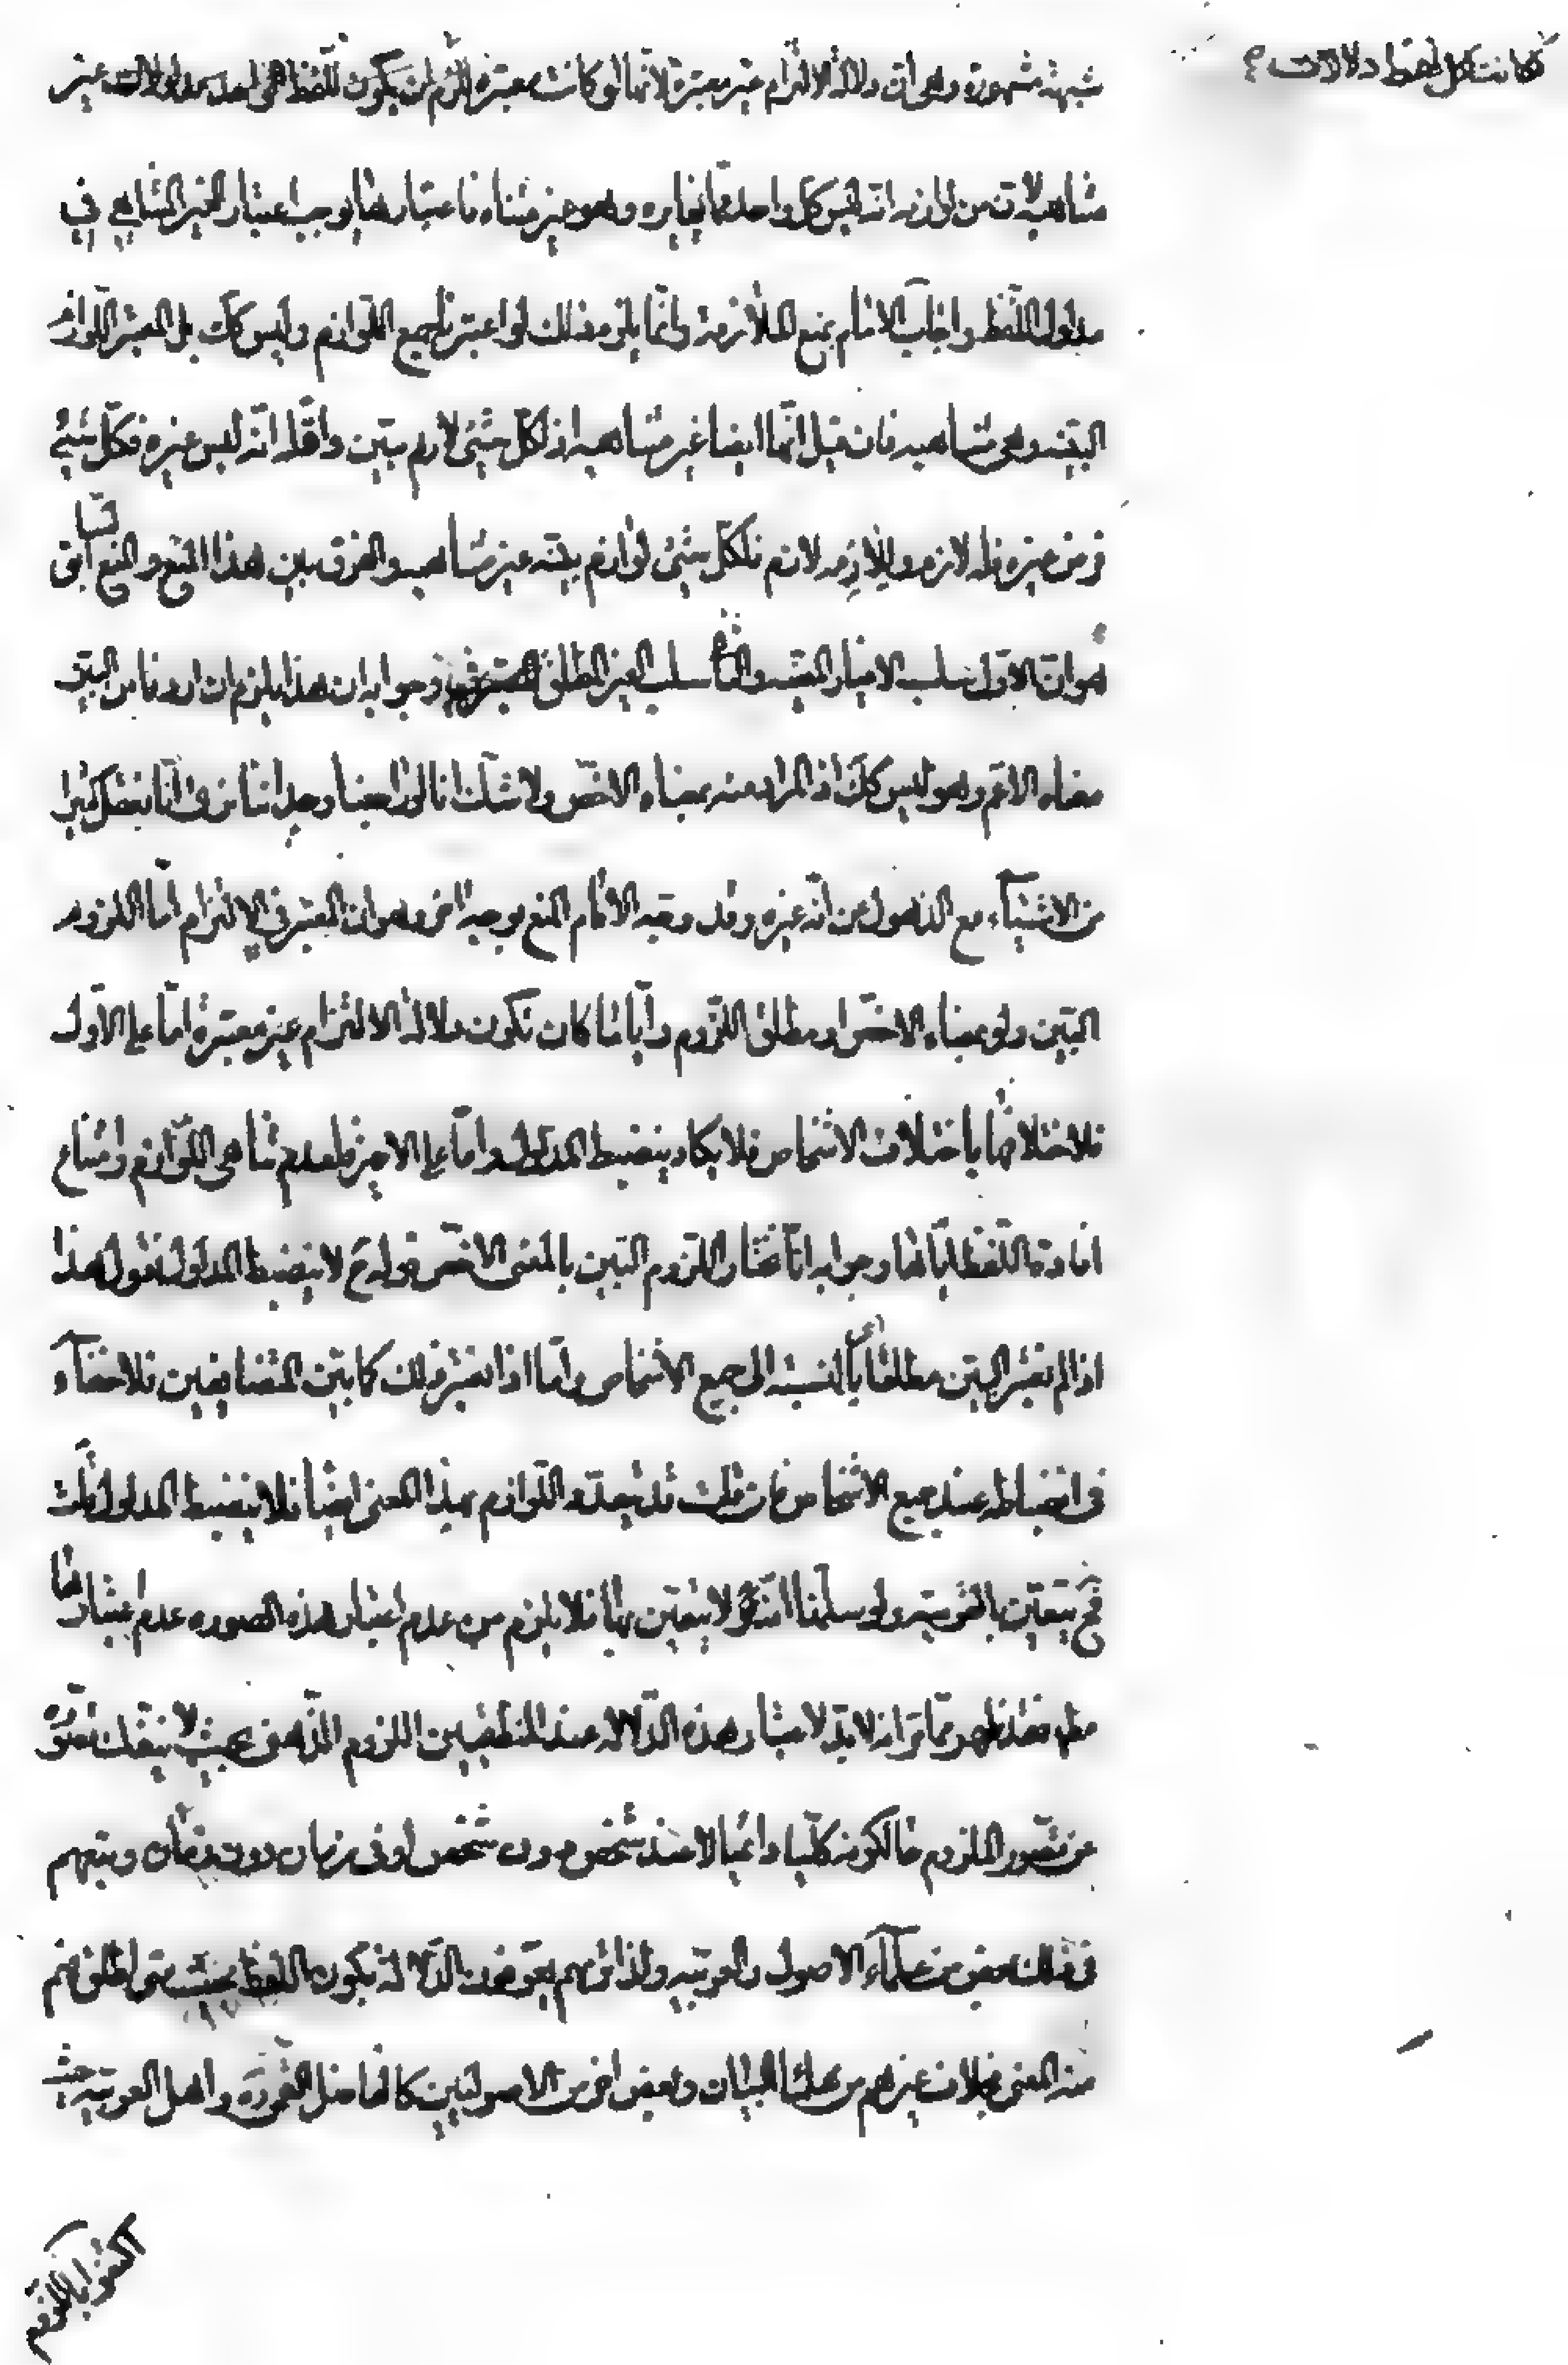 لكانت لكل لفظ دلالات
شبهة مشهورة وهي ان دلالة الالتزام غير معتبرة لانها لو كانت معتبرة لزم ان يكون للفظ الواحد مدلولات غير
متناهية لان من لوازمه انه ليس كل واحد مما يغايره وهو غير متناه فاعتبارها يوجب اعتبار الغير المتناهي في
مدلول اللفظ واجاب الامام بمنع الملازمة وانما يلزم ذلك لو اعتبرنا جميع اللوازم وليس كك بل المعتبر اللوازم
البينة وهي متناهية فان قيل انها ايضا غير متناهية اذ لكل شيئ لازم بين واقله انه ليس غيره فكل شيئ
فرض غيره فله لازم وللازمه لازم فلكل شيئ لوازم بينه غير متناهيه والفرق بين هذا المنع والمنع السابق
هو ان الاول سلب الاغيار المعينه والثاني سلب الغير المطلق وجوابه ان هذا يلزم ان اردنا من البين
معناه الاعم وهو ليس كك اذ المراد منه بمعناه الاخص ولا شك انا لو راجعنا وجداننا نرى انا نعقل كثيرا
من الاشيآء مع الذهول عن انه غيره وقد وجه الامام المنع بوجه اخر وهو ان المعتبر في الالتزام اما اللزوم
البين ولو بمعناه الاخص او مطلق اللزوم وايا ما كان تكون دلالة الالتزام غير معتبرة اما على الاول
فلاختلافها باختلاف الاشخاص فلا يكاد ينضبط المدلول واما على الاخير فلعدم تناهي اللوازم وامتناع
افادة اللفظ اياها وجوابه انا نختار اللزوم البين بالمعنى الاخص قوله ح لا ينضبط المدلول نقول هذا
اذا لم نعتبر البين مطلقا اى بالنسبة الى جميع الاشخاص واما اذا نعتبر ذلك كما بين المتضايفين فلا خفآء
في انضباطه عند جميع الاشخاص فان قلت قد يتعدد اللوازم بهذا المعنى ايضا فلا ينضبط المدلول قلت
فح يتعين بالقرينة ولو سلمنا انه لا يتعين بها فلا يلزم من عدم اعتبار هذه الصوره عدم اعتبارها
مطلقا فقد ظهر مما مر انه لابد لاعتبار هذه الدلاله عند المنطقيين اللزوم الذهني بحيث لا ينفك تصوره
عن تصور الملزوم لكونه كليا دائميا لا عند شخص دون شخص او في زمان دون زمان وتبعهم
في ذلك بعض من علمآء الاصول والعربيه ولذا تريهم يعرفون الدلالة بكون اللفظ بحيث متى اطلق فهم
منه المعنى بخلاف غيرهم من علماء البيان وبعض اخر من الاصوليين واهل العربيه حيث
اكتفوا باللزوم